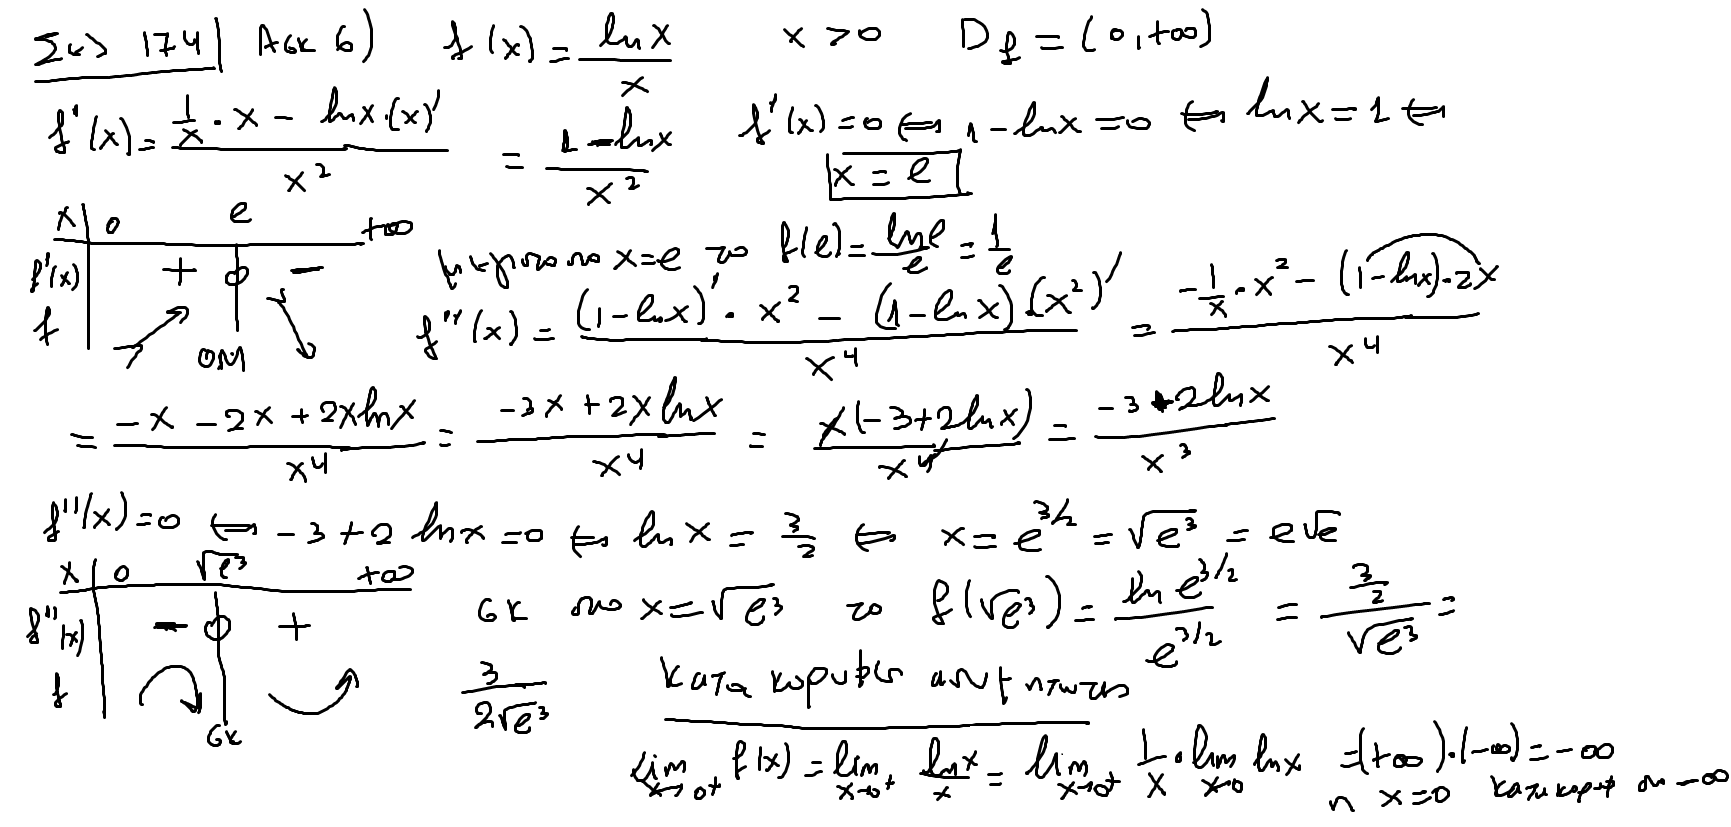 Σελ 174| Ασκ 6) f(x) = lnx/x x > 0 D_f = (0,+∞)
f'(x) = (1/x · x - lnx·(x)')/x² = (1-lnx)/x² f'(x)=0 ⇔ 1-lnx=0 ⇔ lnx=1 ⇔
x = e
x | 0 e +∞
f'(x) + 0 - 
f ΟΜ
στο x=e το f(e) = lne/e = 1/e
f''(x) = ((1-lnx)' · x² - (1-lnx)·(x²)')/x⁴ = (-1/x · x² - (1-lnx)·2x)/x⁴
= (-x - 2x + 2xlnx)/x⁴ = (-3x + 2xlnx)/x⁴ = x(-3+2lnx)/x⁴ = (-3+2lnx)/x³
f''(x)=0 ⇔ -3+2lnx=0 ⇔ lnx = 3/2 ⇔ x = e^{3/2} = √e³ = e√e
x | 0 √e³ +∞
f''(x) - 0 +
f ΣΚ
ΣΚ στο x=√e³ το f(√e³) = ln e^{3/2}/e^{3/2} = (3/2)/√e³ =
3/(2√e³)
κατακόρυφες ασύμπτωτες
lim x→0⁺ f(x) = lim x→0⁺ lnx/x = lim x→0⁺ 1/x · lim x→0 lnx = (+∞)·(-∞) = -∞
η x=0 κατακορφ στο -∞